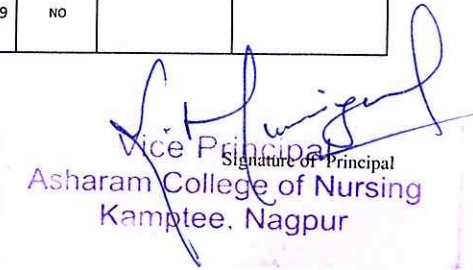 9 NO
Signature of Principal
Vice Principal
Asharam College of Nursing
Kamptee, Nagpur